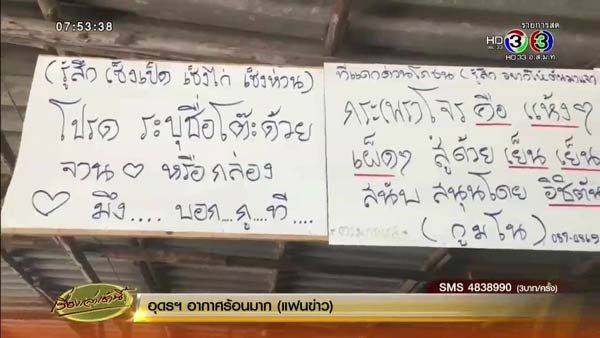 07:53:38
รายการสด
HD 3 3
HD 33 อ.ส.ม.ท.
(รู้สึก เซ็งเป็ด เซ็งไก่ เซ็งห่าน)
โปรด ระบุชื่อโต๊ะด้วย
จาน ♡ หรือ กล่อง
♡ มึง.... บอก...กู....ที....
กระเพราโจร คือ แห้งๆ
เผ็ดๆ สู้ด้วย เย็น เย็น
สนับสนุนโดย อิชิตัน
(กูมโน)
เรื่องเล่าเช้านี้
SMS 4838990 (3บาท/ครั้ง)
อุดรฯ อากาศร้อนมาก (แฟนข่าว)